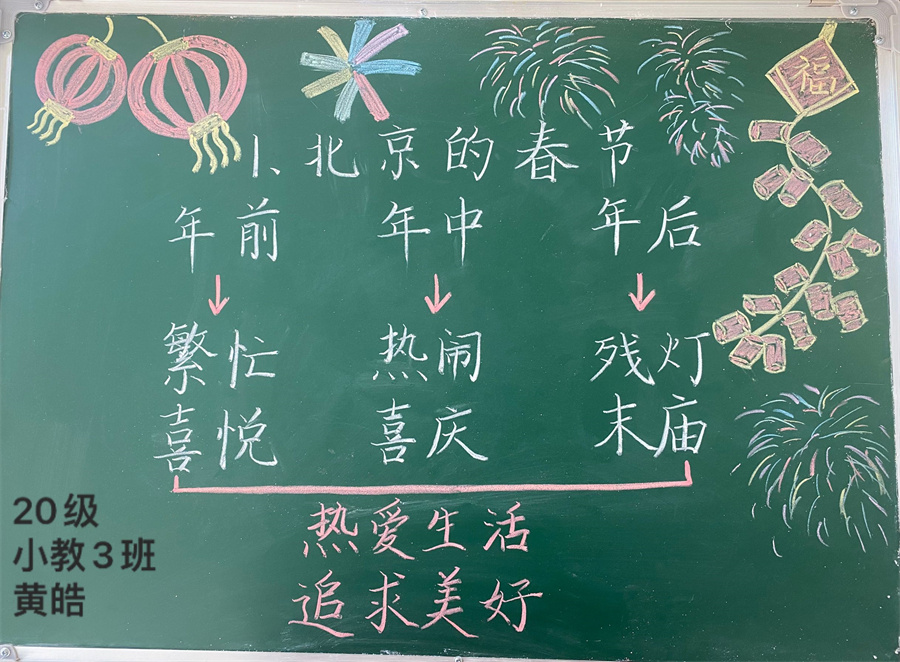 福
1、北京的春节
年前 年中 年后
繁忙 热闹 残灯
喜悦 喜庆 末庙
热爱生活
追求美好
20级
小教3班
黄皓